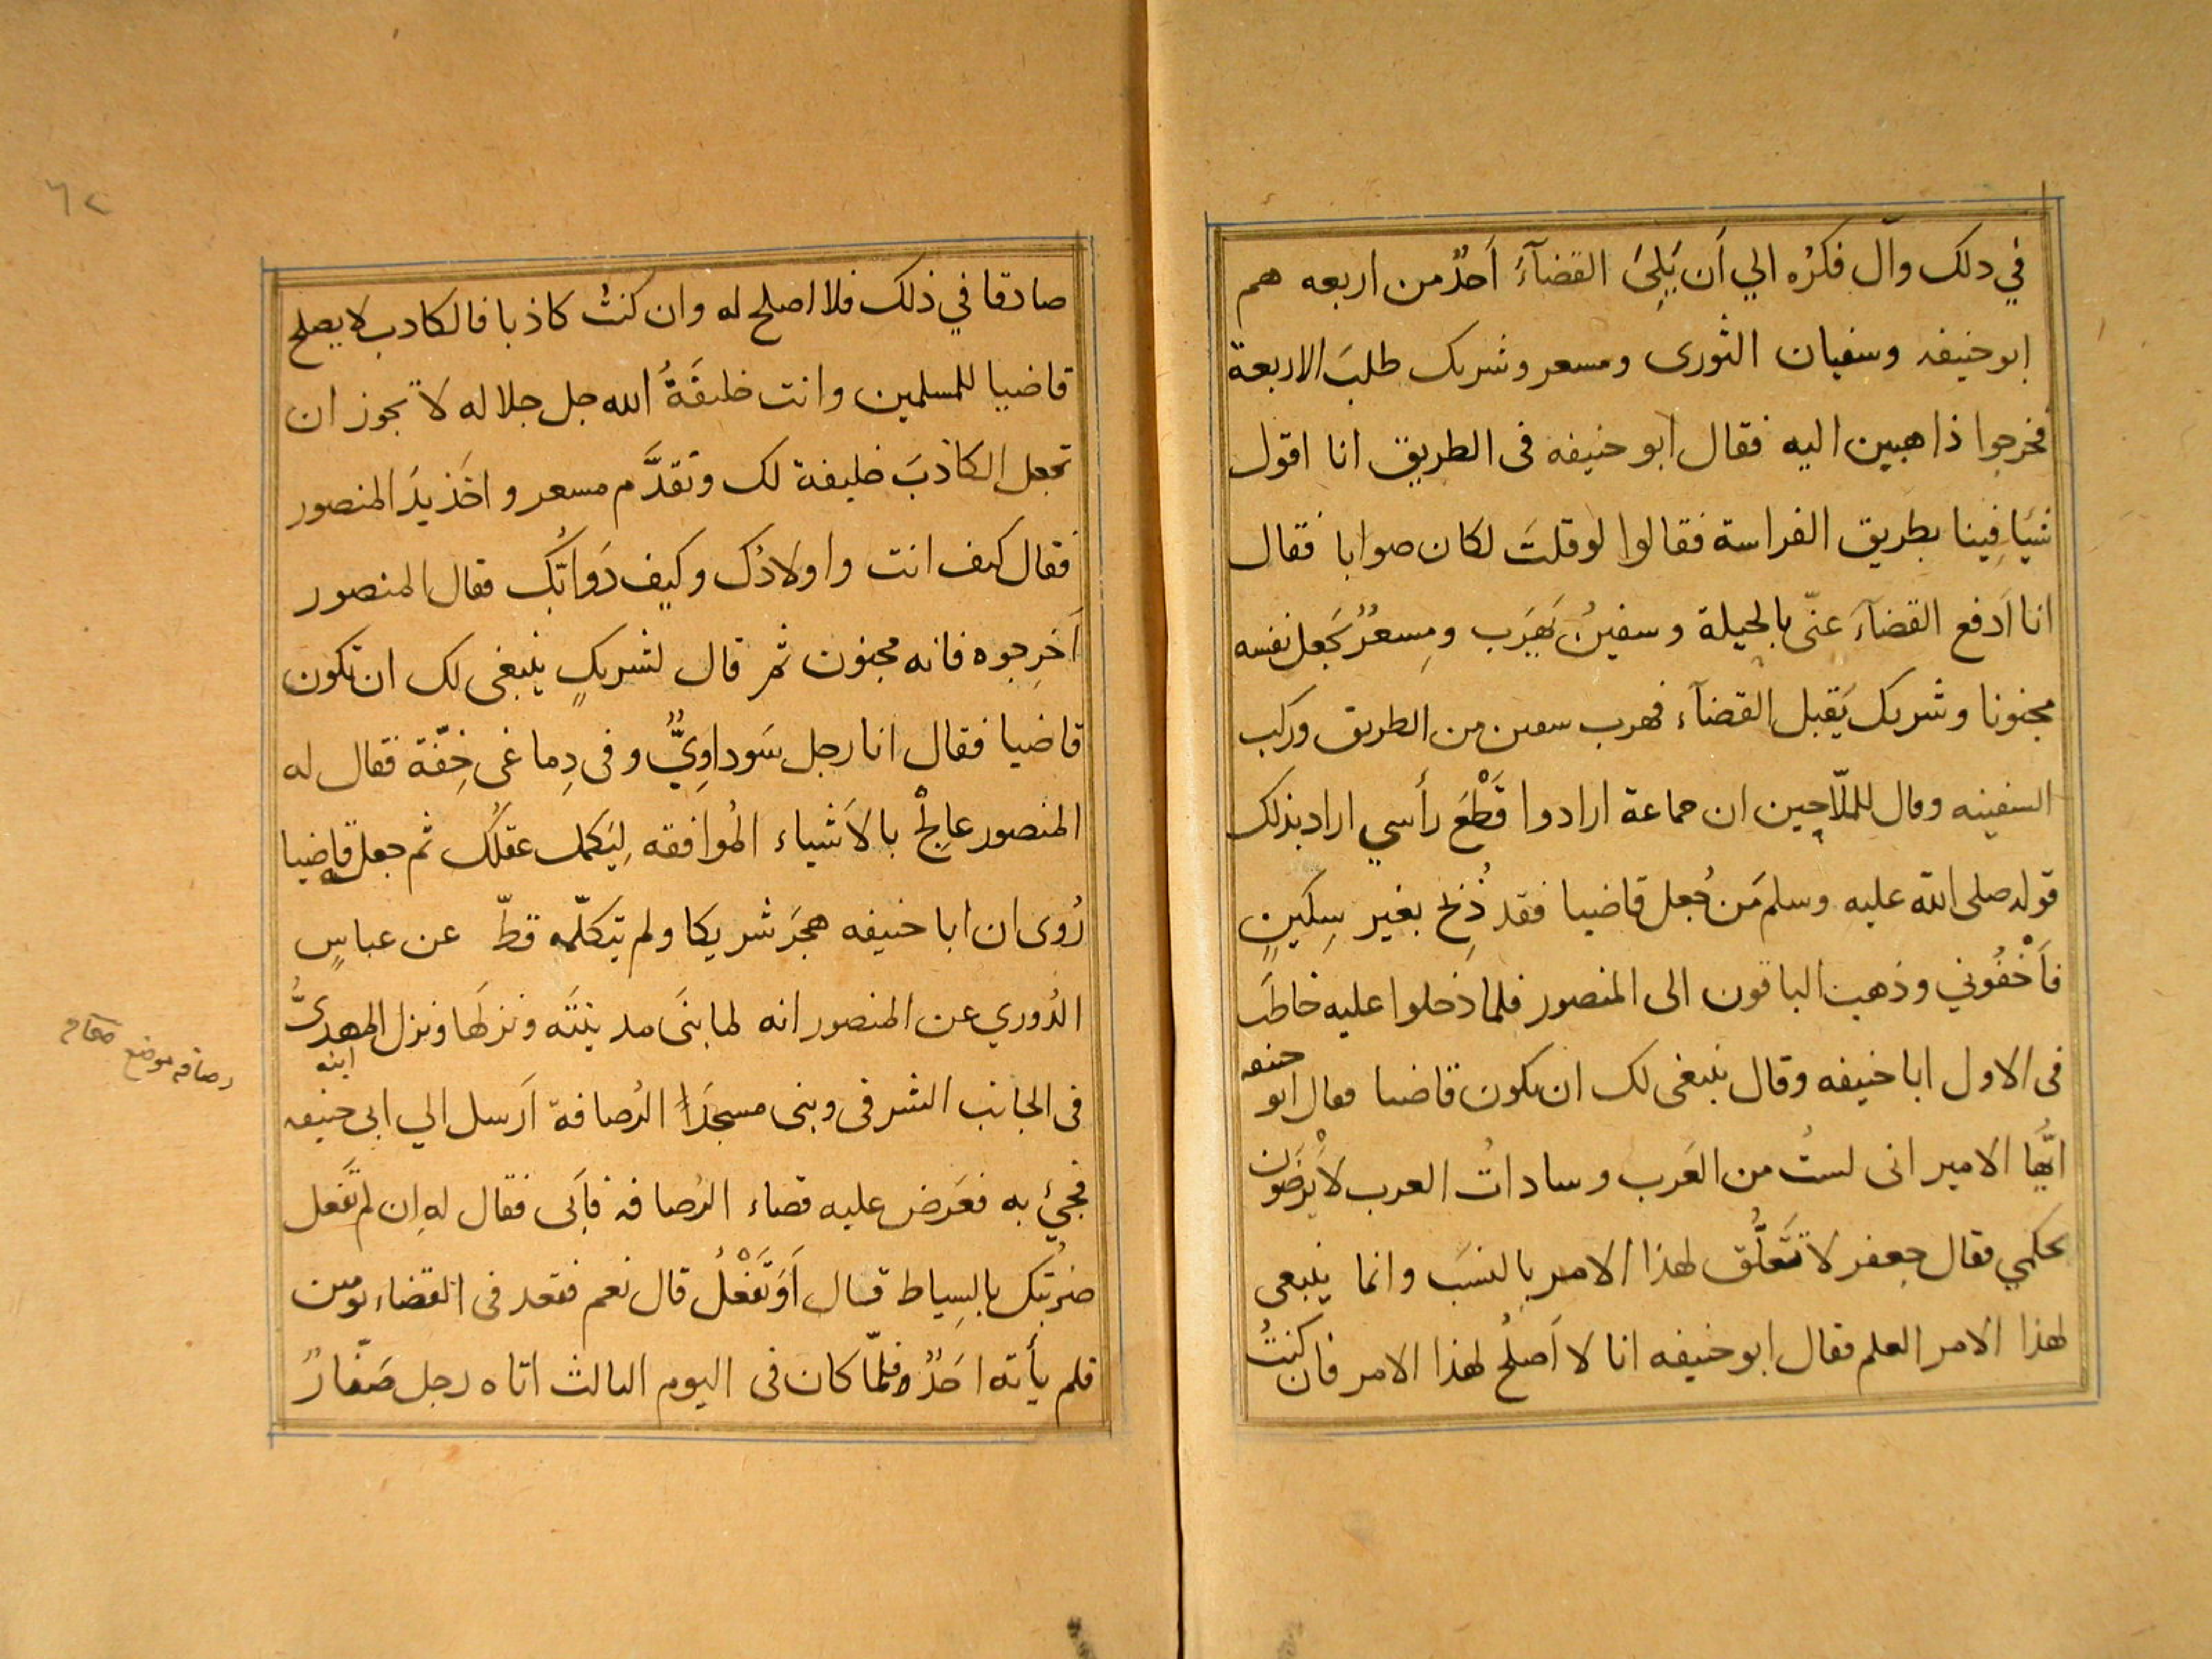 في دلك وآل فكرُه الي اَن يَلِیَ القضآءَ اَحدٌ من اربعه هم
ابو حنيفه وسفيان الثورى ومسعر وشريك طلبَ الاربعة
فخرجوا ذاهبين اليه فقال ابو حنيفه فى الطريق انا اقول
شيَا فِينا بطريق الفراسة فقالوا لو قلتَ لكان صوابا فقال
انا اَدفع القضآءَ عنّى بالحيلة وسفينُ يَهرَب ومِسعرٌ يَجعل نفسه
مجنونا وشريك يَقبل القضآء فهرب سفين من الطريق وركب
السفينه وقال للملّاحِين ان جماعة ارادوا قَطْعَ رأسي اراد بذلك
قوله صلى الله عليه وسلم مَن جُعل قاضيا فقد ذُبِحَ بغير سِكينٍ
فاَخْفُوني وذهبت الباقون الى المنصور فلما دَخلوا عليه خاطَب
فى الاول ابا حنيفه وقال ينبغى لك ان تكون قاضيا فقال ابو حنيفه
ايُّها الامير انى لستُ من العَرب وساداتُ العرب لا يَرْضَون
بحكمي فقال جعفر لا تَعَلُّق لهذا الامر بِالنسَب وانما ينبغى
لهذا الامر العلم فقال ابو حنيفه انا لا اَصلُح لهذا الامر فان كنتُ
صادقا في ذلك فلا اصلح له وان كنتُ كاذبا فالكاذب لا يصلح
قاضيا للمسلمين وانت خليفَةُ الله جل جلاله لا تجوز ان
تجعل الكاذبَ خليفة لك وتَقدَّم مسعر واخَذ يدَ المنصور
فقال كيف انت واولادُك وكيف دَوَابُّك فقال المنصور
اَخرِجوه فانه مجنون ثم قال لشريكٍ ينبغى لك ان تكون
قاضيا فقال انا رجل سَوداوِيٌّ وفى دِماغى خِفّة فقال له
المنصور عالِجْ بالاَشياء المُوافقه لِيَكمل عقلُك ثم جعله قاضيا
رُوى ان ابا حنيفه هجَرَ شريكا ولم يتكلّمه قطّ عن عباسٍ
الدُوري عن المنصور انه لما بنَى مدينتَه ونزلَها ونزل المهدىُّ ابنه
فى الجانب الشرقى وبنى مسجدَ الرُصافة اَرسل الي ابى حنيفه
فجيئ به فعَرض عليه قضاء الرُصافه فاَبى فقال له اِن لم تَفعل
ضربتُك بالسِياط قال اَوَتَفْعلُ قال نعم فقعد فى القضاء يومين
فلم يأته احَدٌ فلمّا كان فى اليوم الثالث اتاه رجل صَفّارٌ
رصافه موضع
٦٢